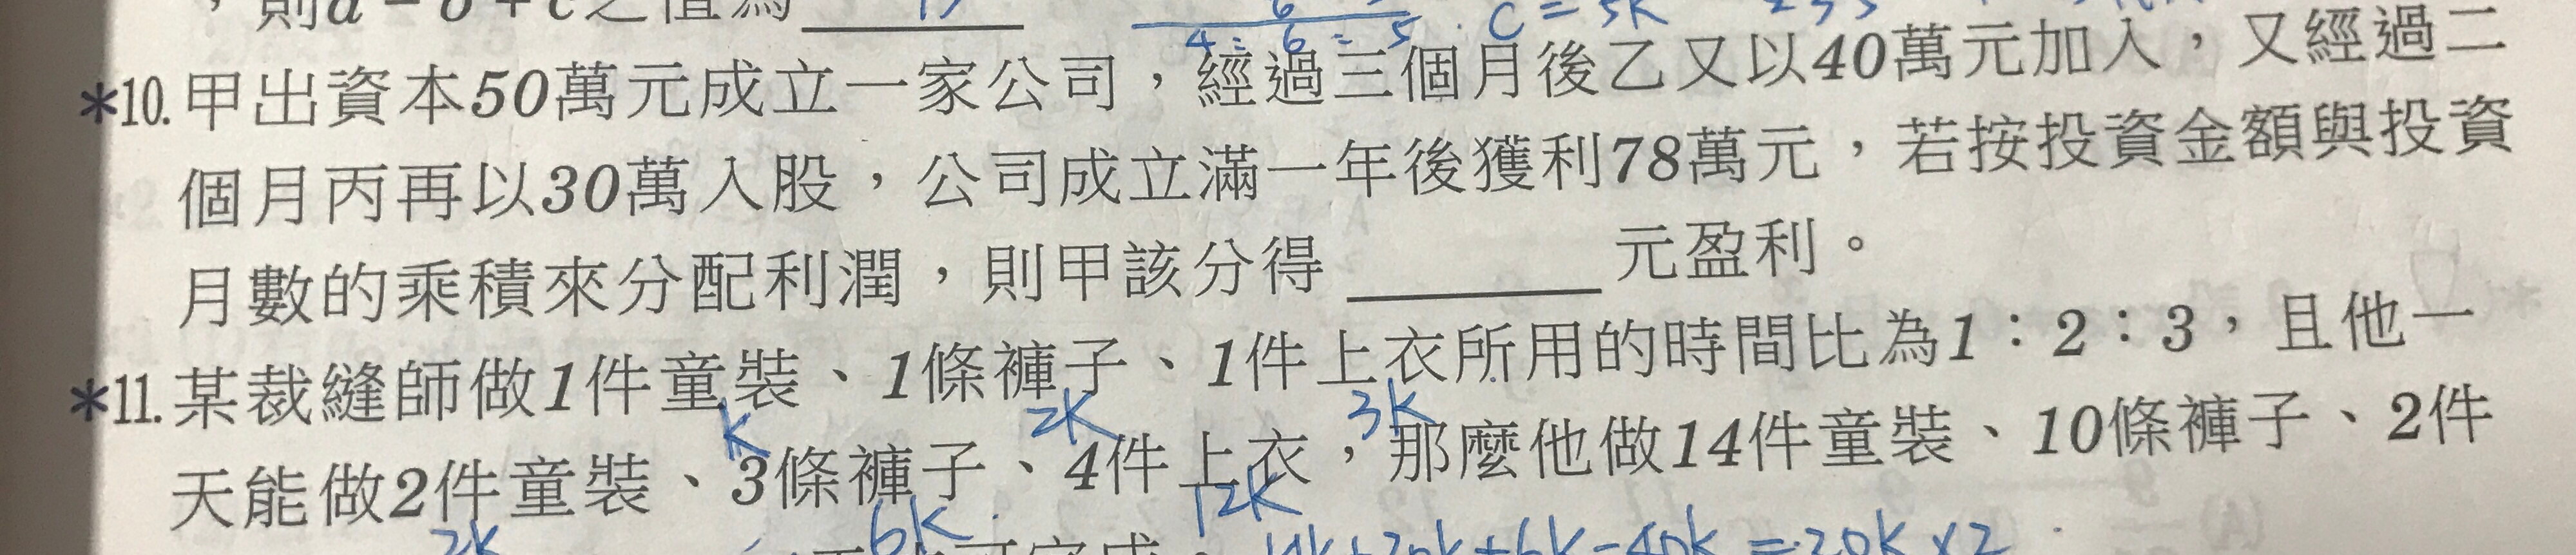 ，則a－b＋c之值為
4：6：5 C＝5K
*10.甲出資本50萬元成立一家公司，經過三個月後乙又以40萬元加入，又經過二
個月丙再以30萬入股，公司成立滿一年後獲利78萬元，若按投資金額與投資
月數的乘積來分配利潤，則甲該分得______元盈利。
*11.某裁縫師做1件童裝、1條褲子、1件上衣所用的時間比為1：2：3，且他一
K 2K 3K
天能做2件童裝、3條褲子、4件上衣，那麼他做14件童裝、10條褲子、2件
2K 6K 12K
14K＋20K＋6K＝40K＝20K×2